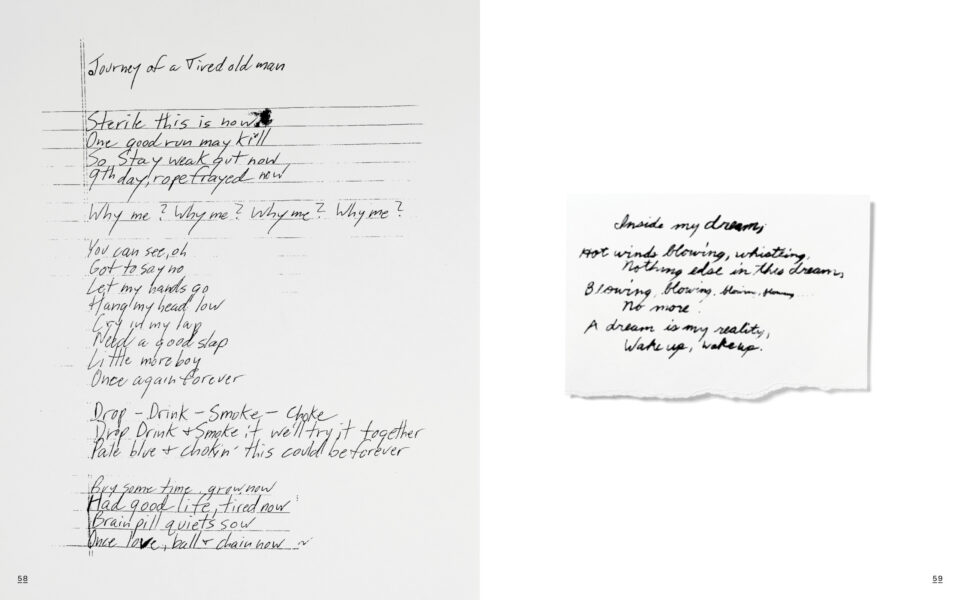 Journey of a Tired old man
Sterile this is now
One good run may kill
So Stay weak gut now
9th day, rope frayed now
Why me? Why me? Why me? Why me?
You can see, oh
Got to say no
Let my hands go
Hang my head low
Cry in my lap
Need a good slap
Little more boy
Once again forever
Drop - Drink - Smoke - Choke
Drop Drink + Smoke it we'll try it together
Pale blue + chokin' this could be forever
Buy some time, grow now
Had good life, tired now
Brain pill quiets sow
Once love, ball + chain now ~
58
Inside my dream,
Hot winds blowing, whistling,
Nothing else in this dream,
Blowing, blowing, blowing, blowing
No more.
A dream is my reality,
Wake up, wake up.
59